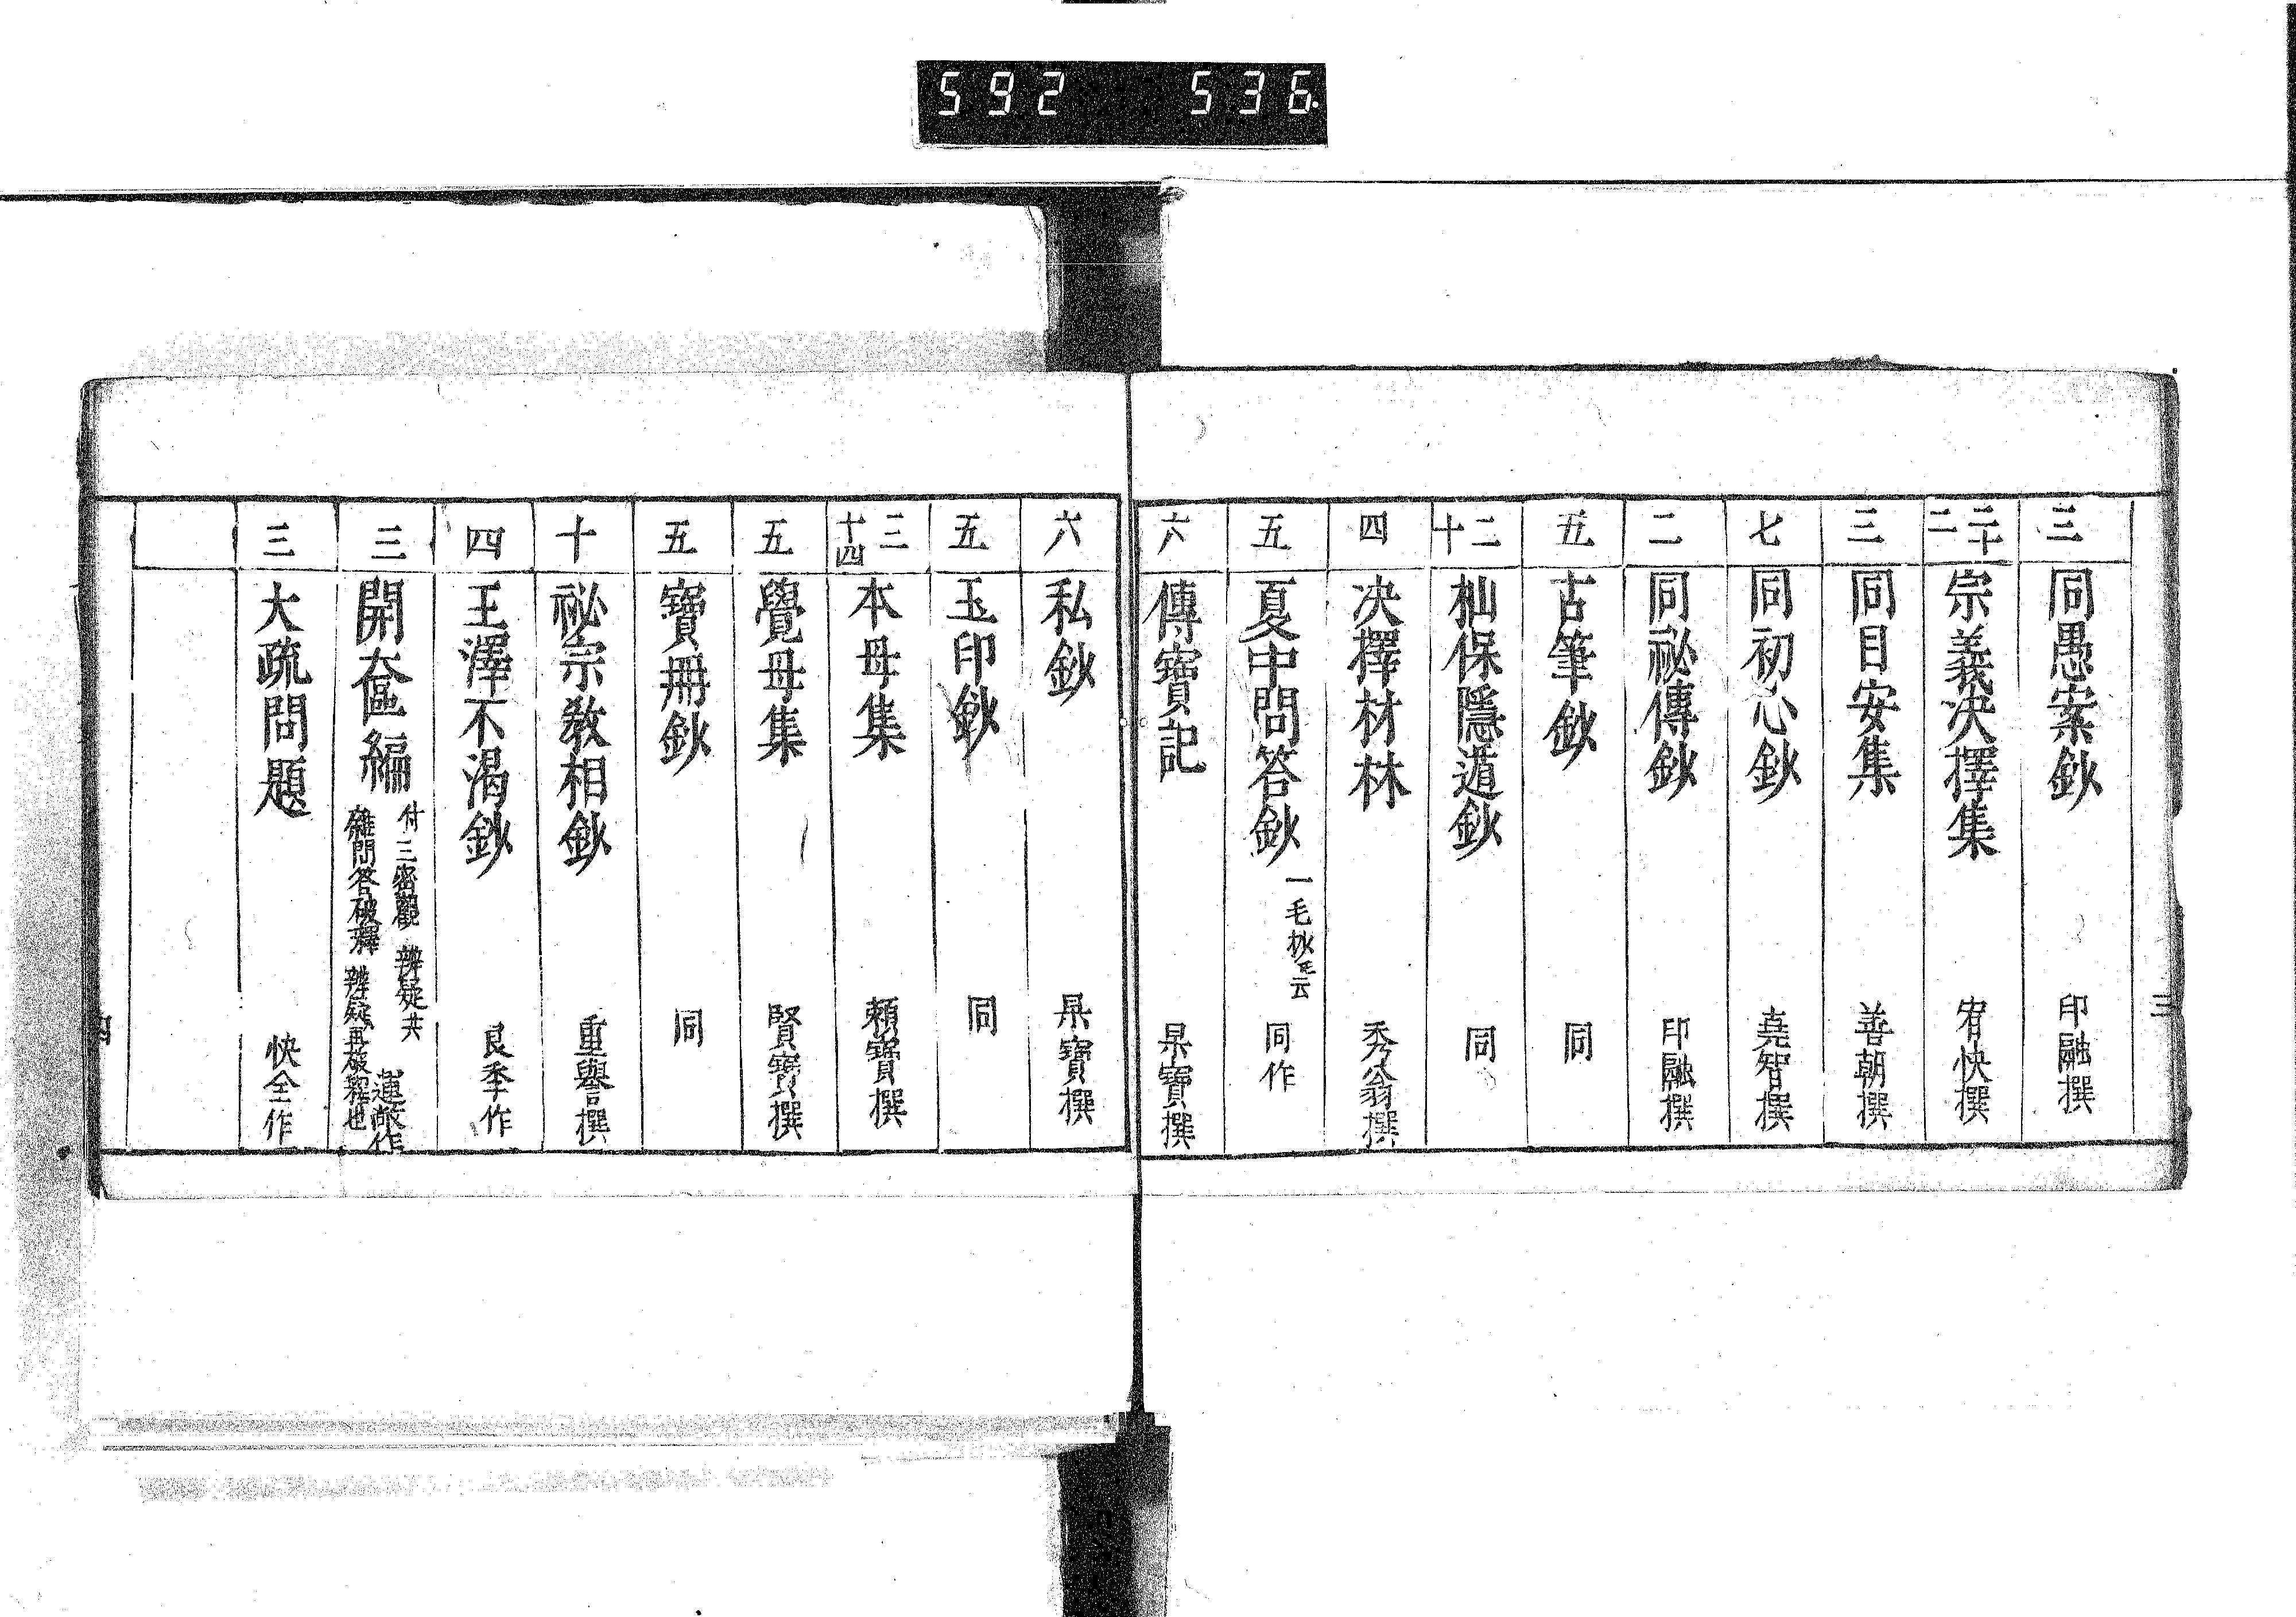 592 536.
三
三 同愚案鈔 印融撰
二十二 宗義决擇集 宥快撰
三 同目安集 善朝撰
七 同初心鈔 堯智撰
二 同祕傳鈔 印融撰
五 古筆鈔 同
二十 杣保隱遁鈔 同
四 决擇材林 秀翁撰
五 夏中問答鈔 一毛 云 同作
六 傳寶記 杲寶撰
六 私鈔 杲寶撰
五 玉印鈔 同
三十四 本母集 賴寶撰
五 覺母集 賢寶撰
五 寶冊鈔 同
十 祕宗教相鈔 重譽撰
四 王澤不渴鈔 良季作
三 開奩編 付三密觀 辨疑共 雜問答破釋 辨疑再破釋也 蓮敞作
三 大疏問題 快全作
四